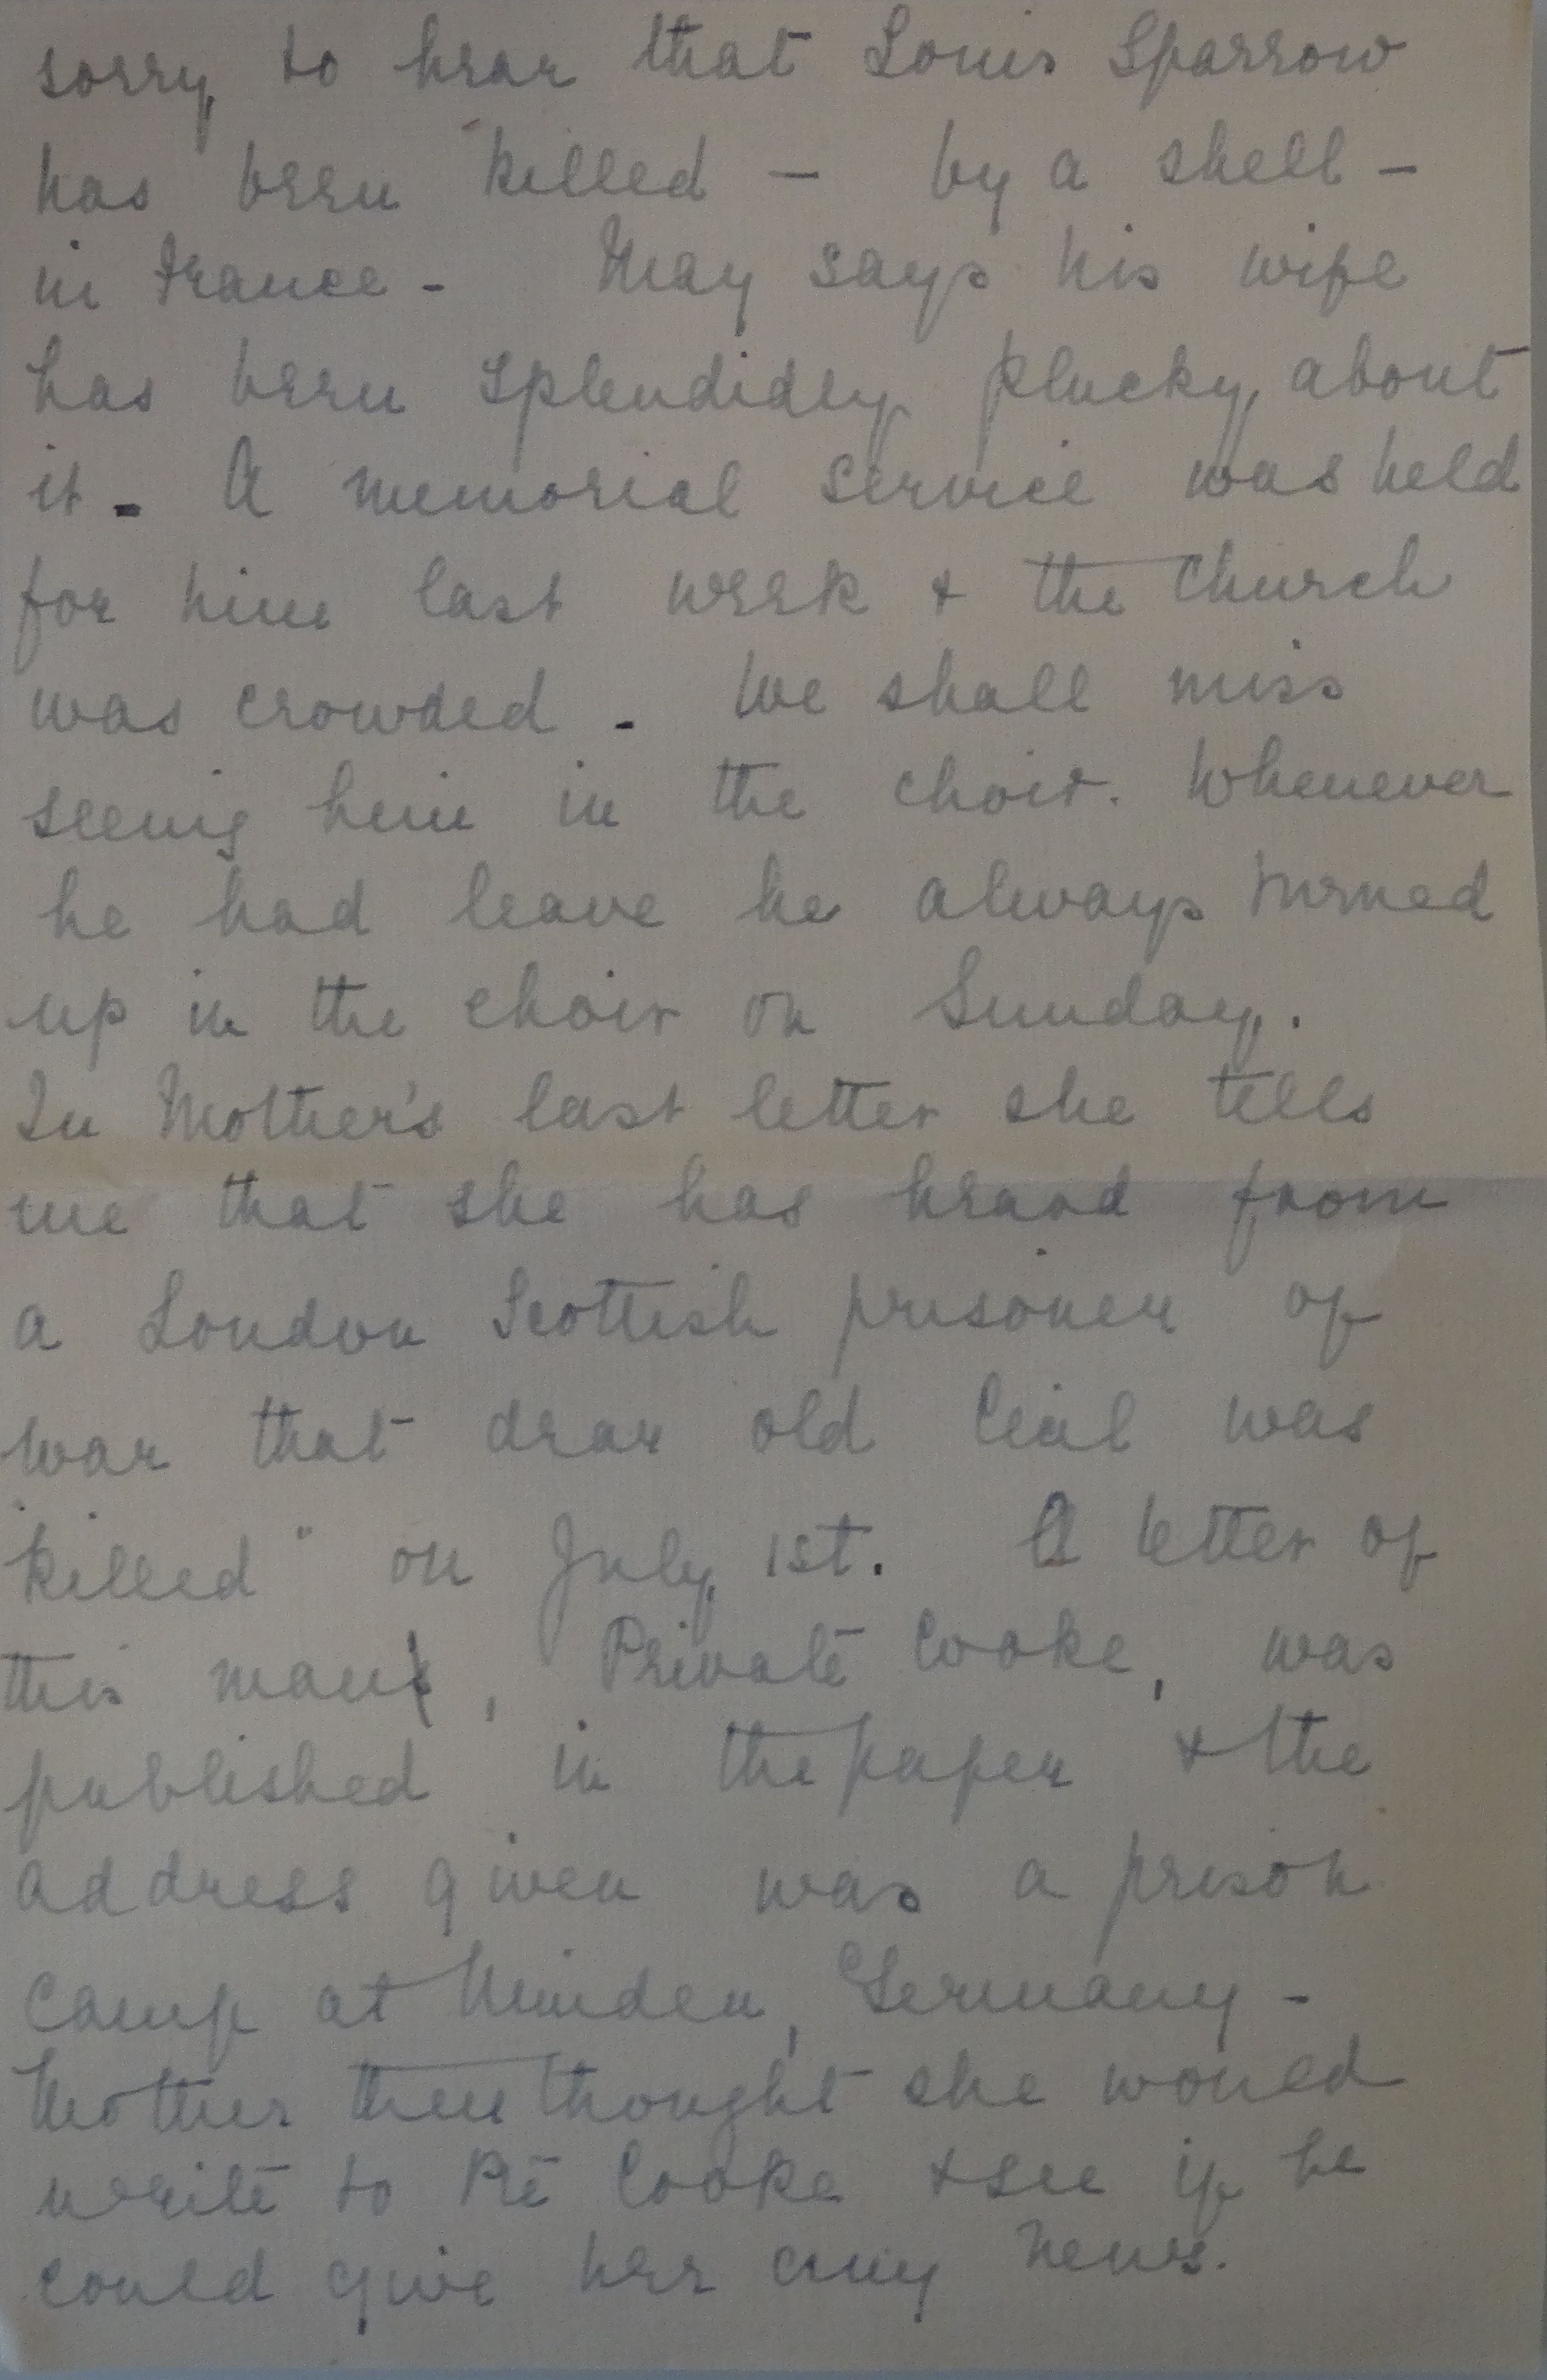 sorry to hear that Louis Sparrow
has been killed – by a shell –
in France – May says his wife
has been splendidly plucky about
it – A memorial service was held
for him last week & the Church
was crowded – We shall miss
seeing him in the choir. Whenever
he had leave he always turned
up in the choir on Sunday.
In Mother's last letter she tells
me that she has heard from
a London Scottish prisoner of
war that dear old Cecil was
"killed" on July 1st. A letter of
this man, Private Cooke, was
published in the paper & the
address given was a prison
camp at Minden, Germany –
Mother then thought she would
write to Pte Cooke & see if he
could give her any news.